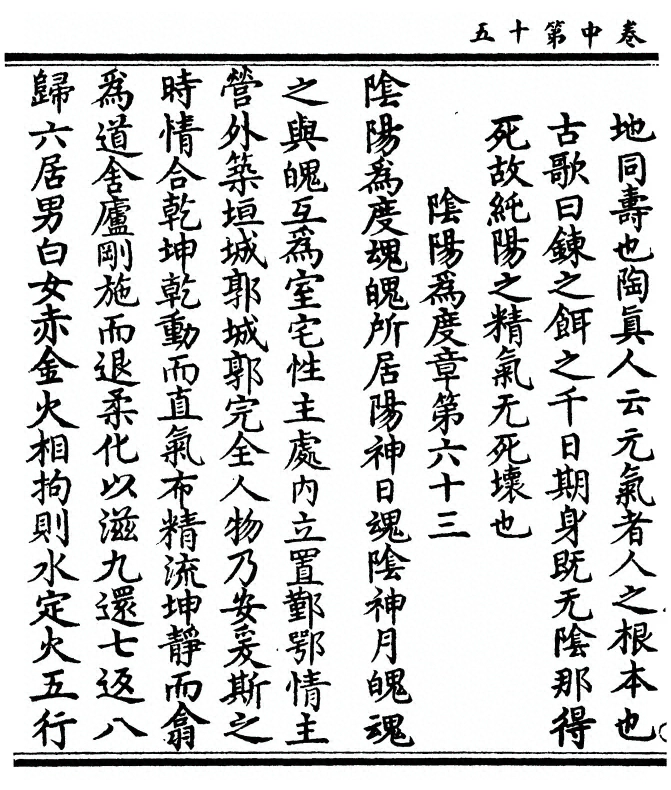 卷中第十五
地同壽也陶眞人云元氣者人之根本也
古歌曰鍊之餌之千日期身既无陰那得
死故純陽之精氣无死壞也
陰陽為度章第六十三
陰陽為度魂魄所居陽神日魂陰神月魄魂
之與魄互為室宅性主處內立置鄞鄂情主
營外築垣城郭城郭完全人物乃安爰斯之
時情合乾坤乾動而直氣布精流坤靜而翕
為道舍廬剛施而退柔化以滋九還七返八
歸六居男白女赤金火相拘則水定火五行